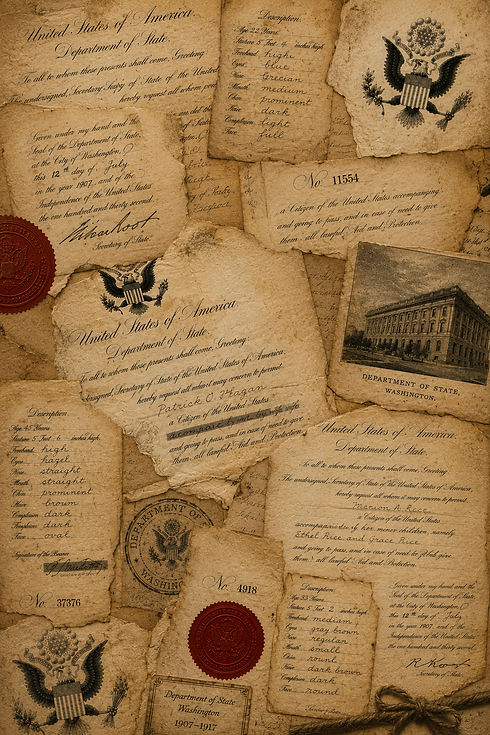 United States of America,
Department of State,
To all to whom these presents shall come, Greeting
The undersigned, Secretary of State of the United
hereby request all whom
Description.
Age 22 Years.
Stature 5 Feet 4 inches high
Forehead high
Eyes blue
Nose Grecian
Mouth medium
Chin prominent
Hair dark
Complexion light
Face full
Given under my hand and the
Seal of the Department of State,
at the City of Washington,
this 12th day of July
in the year 1907, and of the
Independence of the United States
the one hundred and thirty second.
Elihu Root
Secretary of State
No. 11554
a Citizen of the United States accompanying
and going to pass, and in case of need to give
them all lawful Aid and Protection.
United States of America
Department of State,
To all to whom these presents shall come, Greeting:
Secretary of State of the United States of America,
hereby request all whom it may concern to permit
Patrick O'Hagan
a Citizen of the United States
wife
and going to pass, and in case of need to give
them all lawful Aid and Protection
DEPARTMENT OF STATE,
WASHINGTON.
Description.
Age 45 Years.
Stature 5 Feet 6 inches high
Forehead high
Eyes hazel
Nose straight
Mouth straight
Chin prominent
Hair brown
Complexion dark
Face oval
Signature of the Bearer
No. 37376
DEPARTMENT OF STATE
WASHINGTON
United States of America,
Department of State,
To all to whom these presents shall come, Greeting
The undersigned, Secretary of State of the United States of America
hereby request all whom it may concern to permit
Marion A. Rice
a Citizen of the United States
accompanied by her minor children, namely
Ethel Rice and Grace Rice
and going to pass, and in case of need to give
them all lawful Aid and Protection.
No. 4918
Description.
Age 33 Years.
Stature 5 Feet 2 inches high
Forehead medium
Eyes gray brown
Nose regular
Mouth small
Chin round
Hair dark brown
Complexion dark
Face round
Given under my hand and the
Seal of the Department of State,
at the City of Washington,
this 12th day of July
in the year 1907, and of the
Independence of the United States
the one hundred and thirty second.
Secretary of State
Department of State
Washington
1907–1917